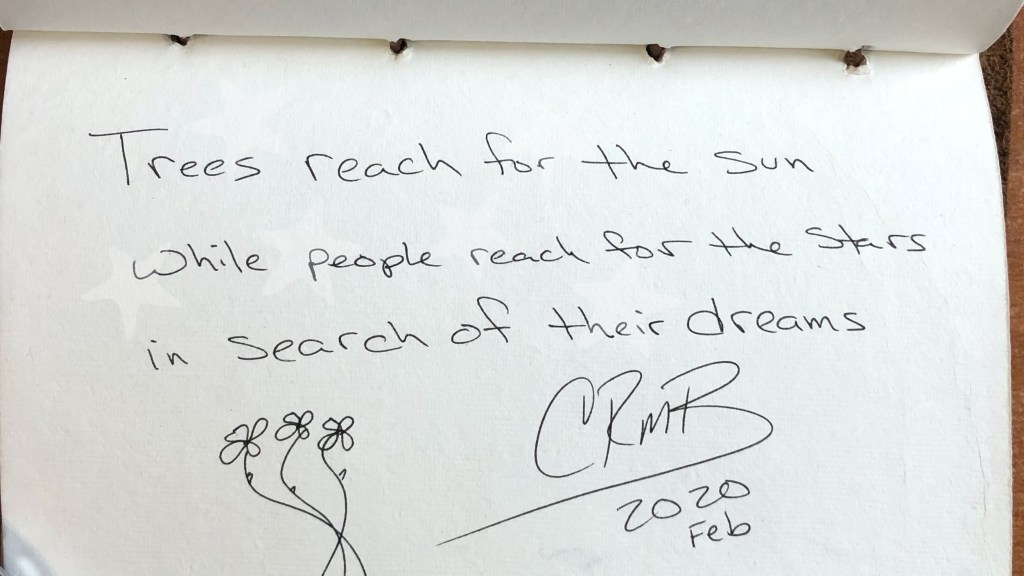 Trees reach for the sun
while people reach for the stars
in search of their dreams
CRMB
2020
Feb